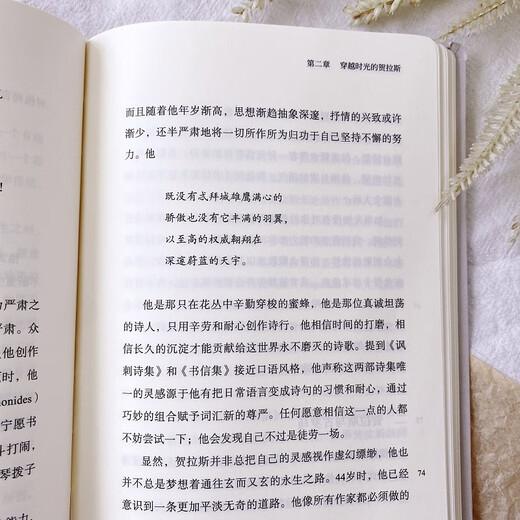 第二章 穿越时光的贺拉斯
而且随着他年岁渐高，思想渐趋抽象深邃，抒情的兴致或许
渐少，还半严肃地将一切所作所为归功于自己坚持不懈的努
力。他
既没有忒拜城雄鹰满心的
骄傲也没有它丰满的羽翼，
以至高的权威翱翔在
深邃蔚蓝的天宇。
他是那只在花丛中辛勤穿梭的蜜蜂，他是那位真诚坦荡
的诗人，只用辛劳和耐心创作诗行。他相信时间的打磨，相
信长久的沉淀才能贡献给这世界永不磨灭的诗歌。提到《讽
刺诗集》和《书信集》接近口语风格，他声称这两部诗集唯
一的灵感源于他有把日常语言变成诗句的习惯和耐心，通过
巧妙的组合赋予词汇新的尊严。任何愿意相信这一点的人都
不妨尝试一下；他会发现自己不过是徒劳一场。
显然，贺拉斯并非总把自己的灵感视作虚幻缥缈，他也
并不总是梦想着通往玄而又玄的永生之路。44岁时，他已经
意识到一条更加平淡无奇的道路。他像所有作家都必须做的
74
！
严肃之
肃。众
他创作
时，他
onides）
宁愿书
斗打闹，
琴拨子